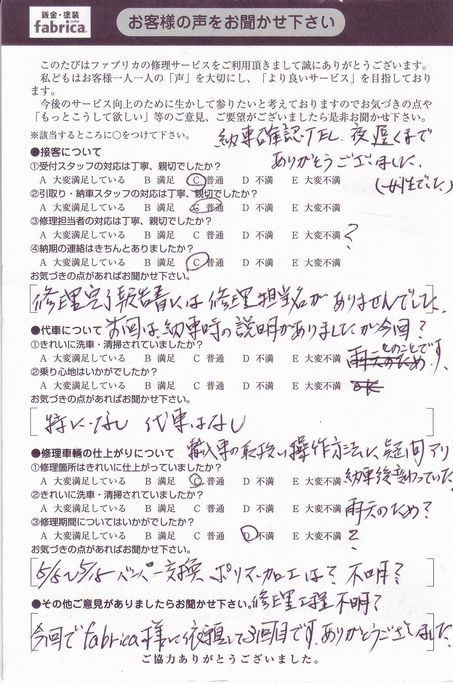 鈑金・塗装
fabrica.
お客様の声をお聞かせ下さい
このたびはファブリカの修理サービスをご利用頂きまして誠にありがとうございます。
私どもはお客様一人一人の「声」を大切にし、「より良いサービス」を目指しており
ます。
今後のサービス向上のために生かして参りたいと考えておりますのでお気づきの点や
「もっとこうして欲しい」等のご意見、ご要望がございましたら是非お聞かせ下さい。
※該当するところに○をつけて下さい。
納車確認TEL、夜遅くまで
ありがとうございました。
●接客について
①受付スタッフの対応は丁寧、親切でしたか？
A 大変満足している B 満足 C 普通 D 不満 E 大変不満
②引取り・納車スタッフの対応は丁寧、親切でしたか？
A 大変満足している B 満足 C 普通 D 不満 E 大変不満
③修理担当者の対応は丁寧、親切でしたか？
A 大変満足している B 満足 C 普通 D 不満 E 大変不満 ?
④納期の連絡はきちんとありましたか？
A 大変満足している B 満足 C 普通 D 不満 E 大変不満
お気づきの点があればお聞かせ下さい。
修理完了報告書には修理担当名がありませんでした。
●代車について
前回は納車時の説明がありましたが今回？
①きれいに洗車・清掃されていましたか？
A 大変満足している B 満足 C 普通 D 不満 E 大変不満
とのことです。
②乗り心地はいかがでしたか？
A 大変満足している B 満足 C 普通 D 不満 E 大変不満
お気づきの点があればお聞かせ下さい。
特になし 代車はなし
●修理車輌の仕上がりについて
購入車の取扱い操作方法に疑問アリ
①修理箇所はきれいに仕上がっていましたか？
A 大変満足している B 満足 C 普通 D 不満 E 大変不満
納車後変わっていた
②きれいに洗車・清掃されていましたか？
A 大変満足している B 満足 C 普通 D 不満 E 大変不満
雨天のため？
③修理期間についてはいかがでしたか？
A 大変満足している B 満足 C 普通 D 不満 E 大変不満 ?
お気づきの点があればお聞かせ下さい。
5/5〜5/15 バンパー交換、ポリマー加工は？ 不明？
●その他ご意見がありましたらお聞かせ下さい。
修理工程不明？
今回でfabrica様に依頼して3回目です。ありがとうございました。
ご協力ありがとうございました。